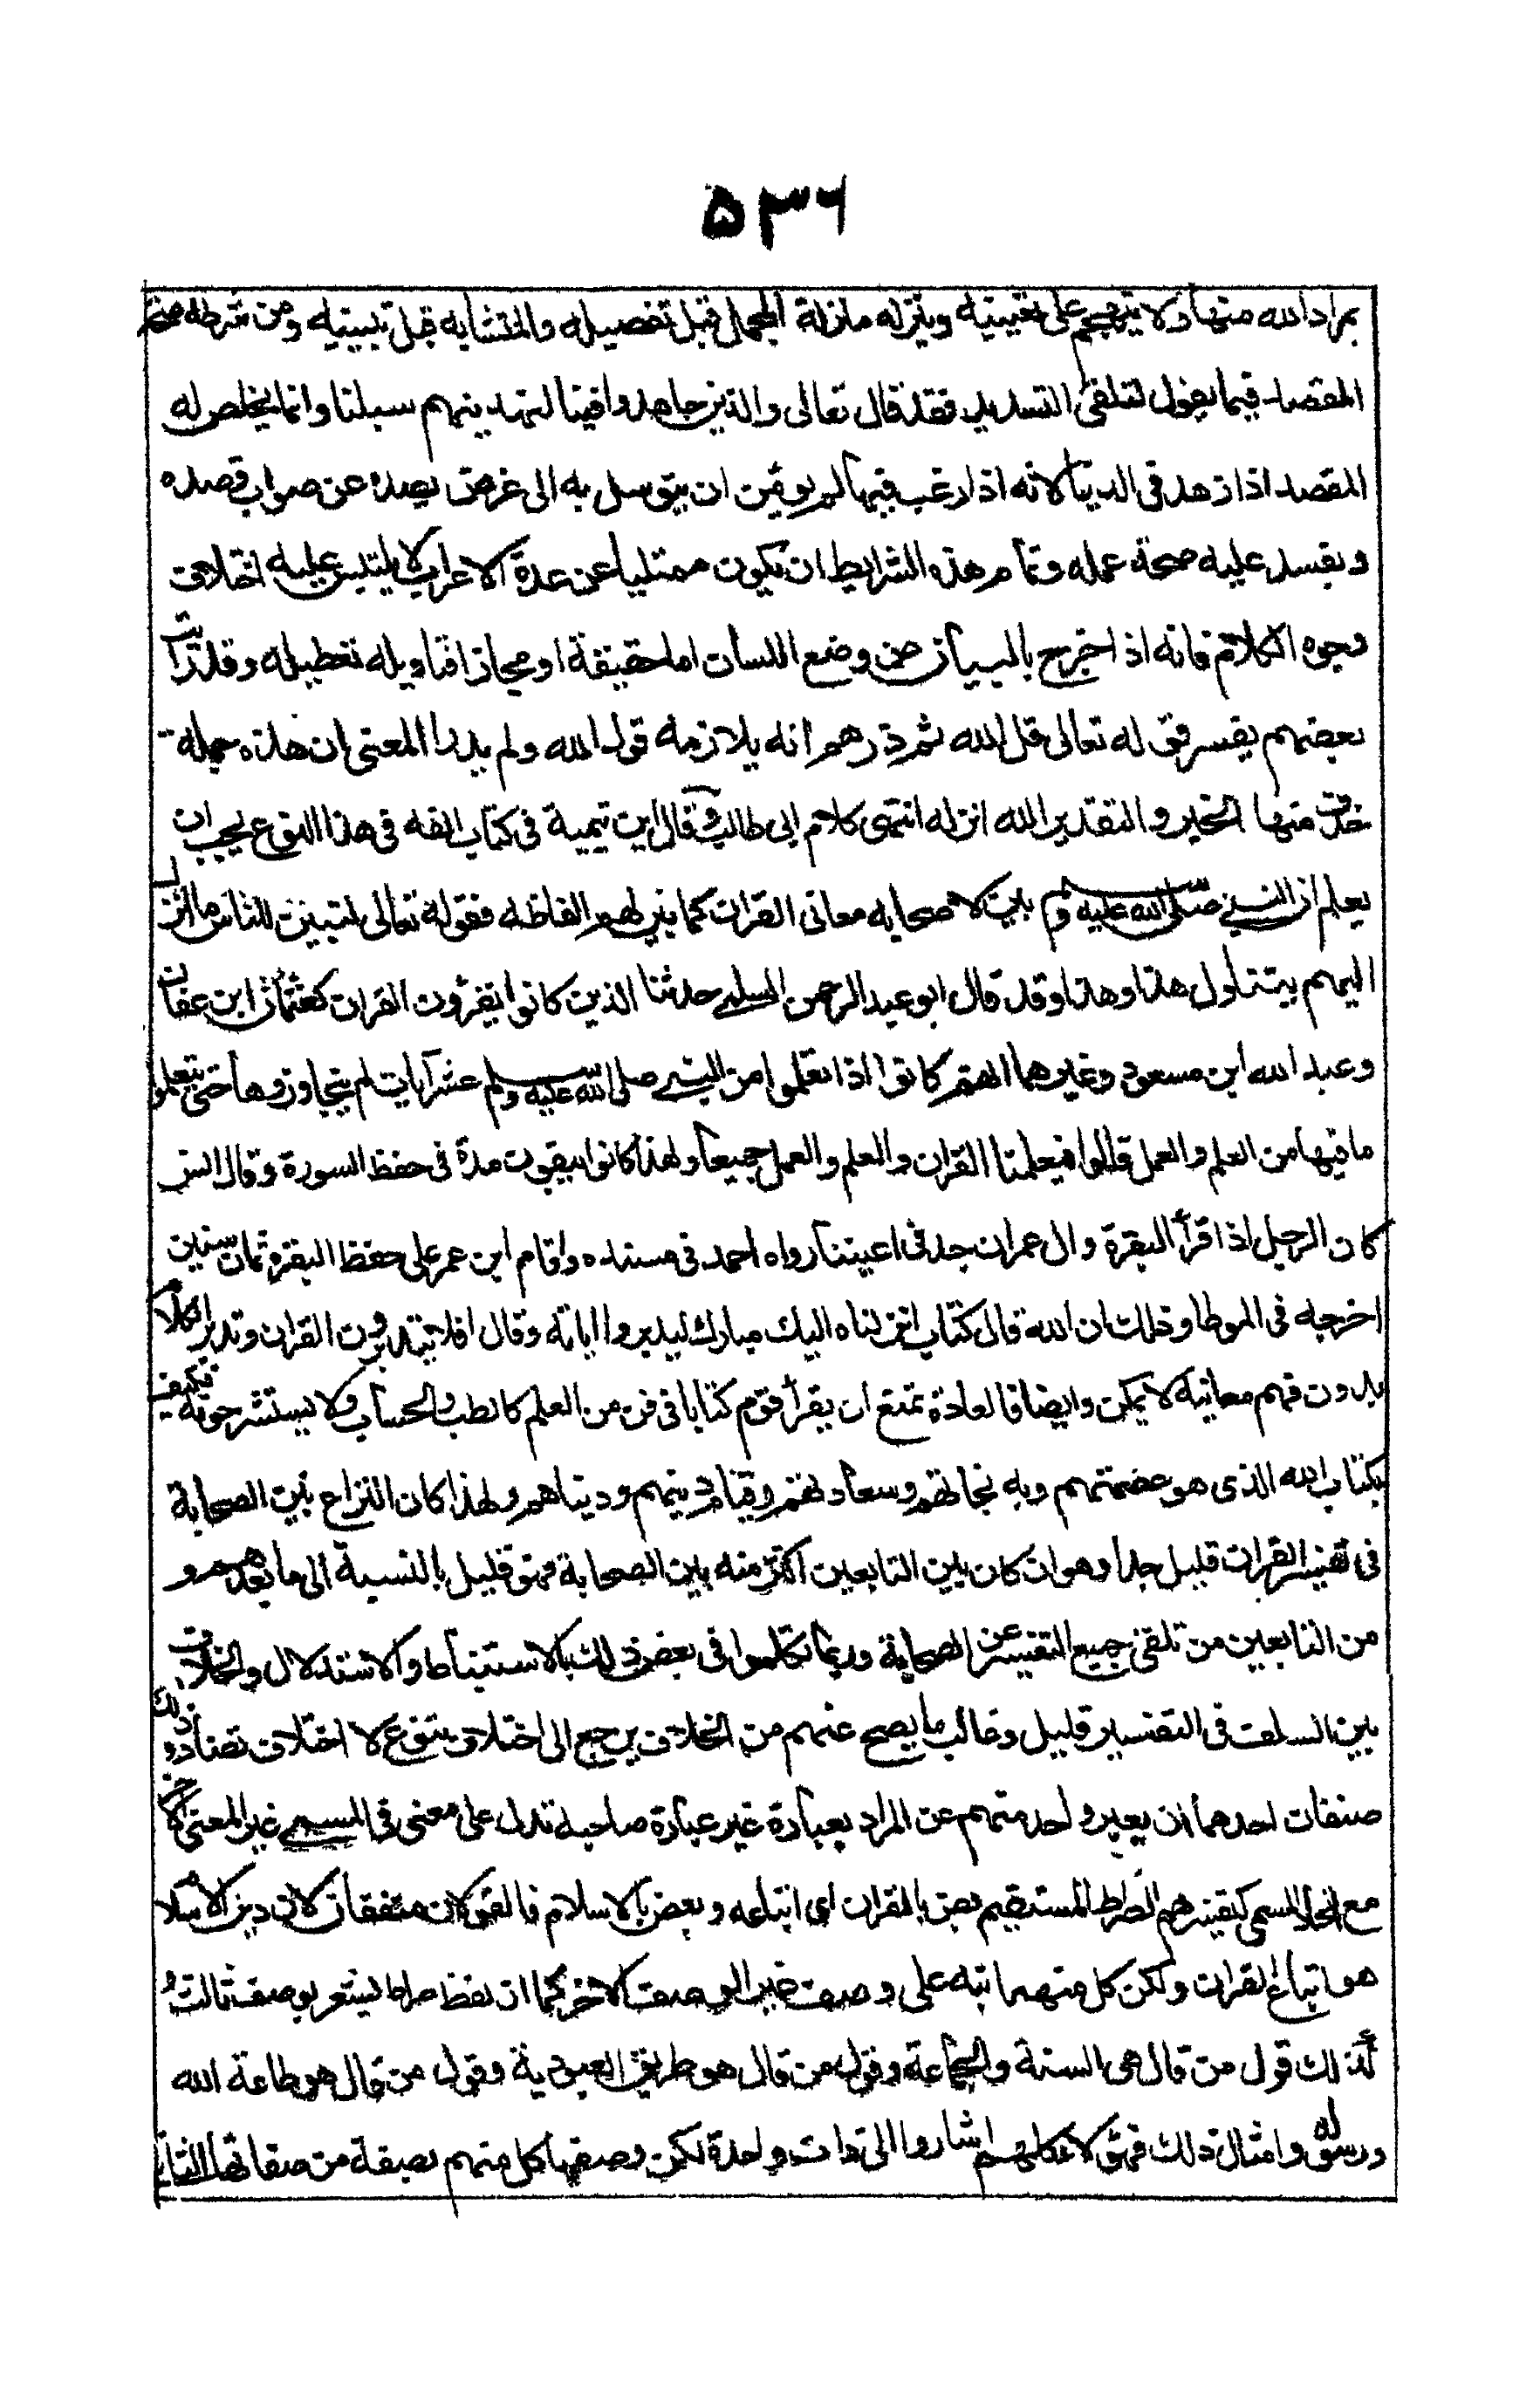 ٥٣٦
بمراد الله منها ولا يتهجم على تعيينه وينزله منزلة المجمل قبل تفصيله والمتشابه قبل تبيينه ومن شرطه صحة
المقصد فيما يقول لتلقى التسديد فقد قال تعالى والذين جاهدوا فينا لنهدينهم سبلنا وانما يخلص له
المقصد اذا زهد فى الدنيا لانه اذا رغب فيها لم يؤمن ان يتوسل به الى غرض يصده عن صواب قصده
ويفسد عليه صحة عمله وتمام هذه الشرايط ان يكون ممتليا من عدة الاعراب لا يلتبس عليه اختلاف
وجوه الكلام فانه اذا خرج بالبيان عن وضع اللسان اما حقيقة او مجازا فتاويله تعطيله وقد رأيت
بعضهم يفسر قوله تعالى قل الله ثم ذرهم انه يلازمه قول الله ولم يدر المعنى ان هذه جملة
حذف منها الخبر والتقدير الله انزله انتهى كلام ابى طالب وقال ابن تيمية فى كتاب الفه فى هذا النوع يجب ان
يعلم ان النبى صلى الله عليه وسلم بين لاصحابه معانى القران كما بين لهم الفاظه فقوله تعالى لتبين للناس ما انزل
اليهم يتناول هذا وهذا وقد قال ابو عبد الرحمن السلمى حدثنا الذين كانوا يقرؤن القران كعثمان ابن عفان
وعبد الله ابن مسعود وغيرهما انهم كانوا اذا تعلموا من النبى صلى الله عليه وسلم عشر آيات لم يتجاوزوها حتى يتعلموا
ما فيها من العلم والعمل قالوا فتعلمنا القران والعلم والعمل جميعا ولهذا كانوا يبقون مدة فى حفظ السورة وقال انس
كان الرجل اذا قرأ البقرة وال عمران جد فى اعيننا رواه احمد فى مسنده واقام ابن عمر على حفظ البقرة ثمان سنين
اخرجه فى الموطا وذلك ان الله قال كتاب انزلناه اليك مبارك ليدبروا اياته وقال افلا يتدبرون القران وتدبر الكلام
بدون فهم معانيه لا يمكن وايضا فالعادة تمنع ان يقرأ قوم كتابا فى فن من العلم كالطب والحساب ولا يستشرحونه فكيف
بكتاب الله الذى هو عصمتهم وبه نجاتهم وسعادتهم وقيام دينهم ودنياهم ولهذا كان النزاع بين الصحابة
فى تفسير القران قليل جدا وهو ان كان بين التابعين اكثر منه بين الصحابة فهو قليل بالنسبة الى ما بعدهم و
من التابعين من تلقى جميع التفسير عن الصحابة وربما تكلموا فى بعض ذلك بالاستنباط والاستدلال والخلاف
بين السلف فى التفسير قليل وغالب ما يصح عنهم من الخلاف يرجع الى اختلاف تنوع لا اختلاف تضاد وذلك
صنفان احدهما ان يعبر واحد منهم عن المراد بعبارة غير عبارة صاحبه تدل على معنى فى المسمى غير المعنى الاخر
مع اتحاد المسمى كتفسيرهم الصراط المستقيم بعض بالقران اى اتباعه وبعض بالاسلام فالقولان متفقان لان دين الاسلام
هو اتباع القران ولكن كل منهما نبه على وصف غير الوصف الاخر كما ان لفظ صراط يشعر بوصف ثالث و
كذلك قول من قال هى السنة والجماعة وقول من قال هو طريق العبودية وقول من قال هو طاعة الله
ورسوله وامثال ذلك فهؤلاء كلهم اشاروا الى ذات واحدة لكن وصفها كل منهم بصفة من صفاتها الثانى